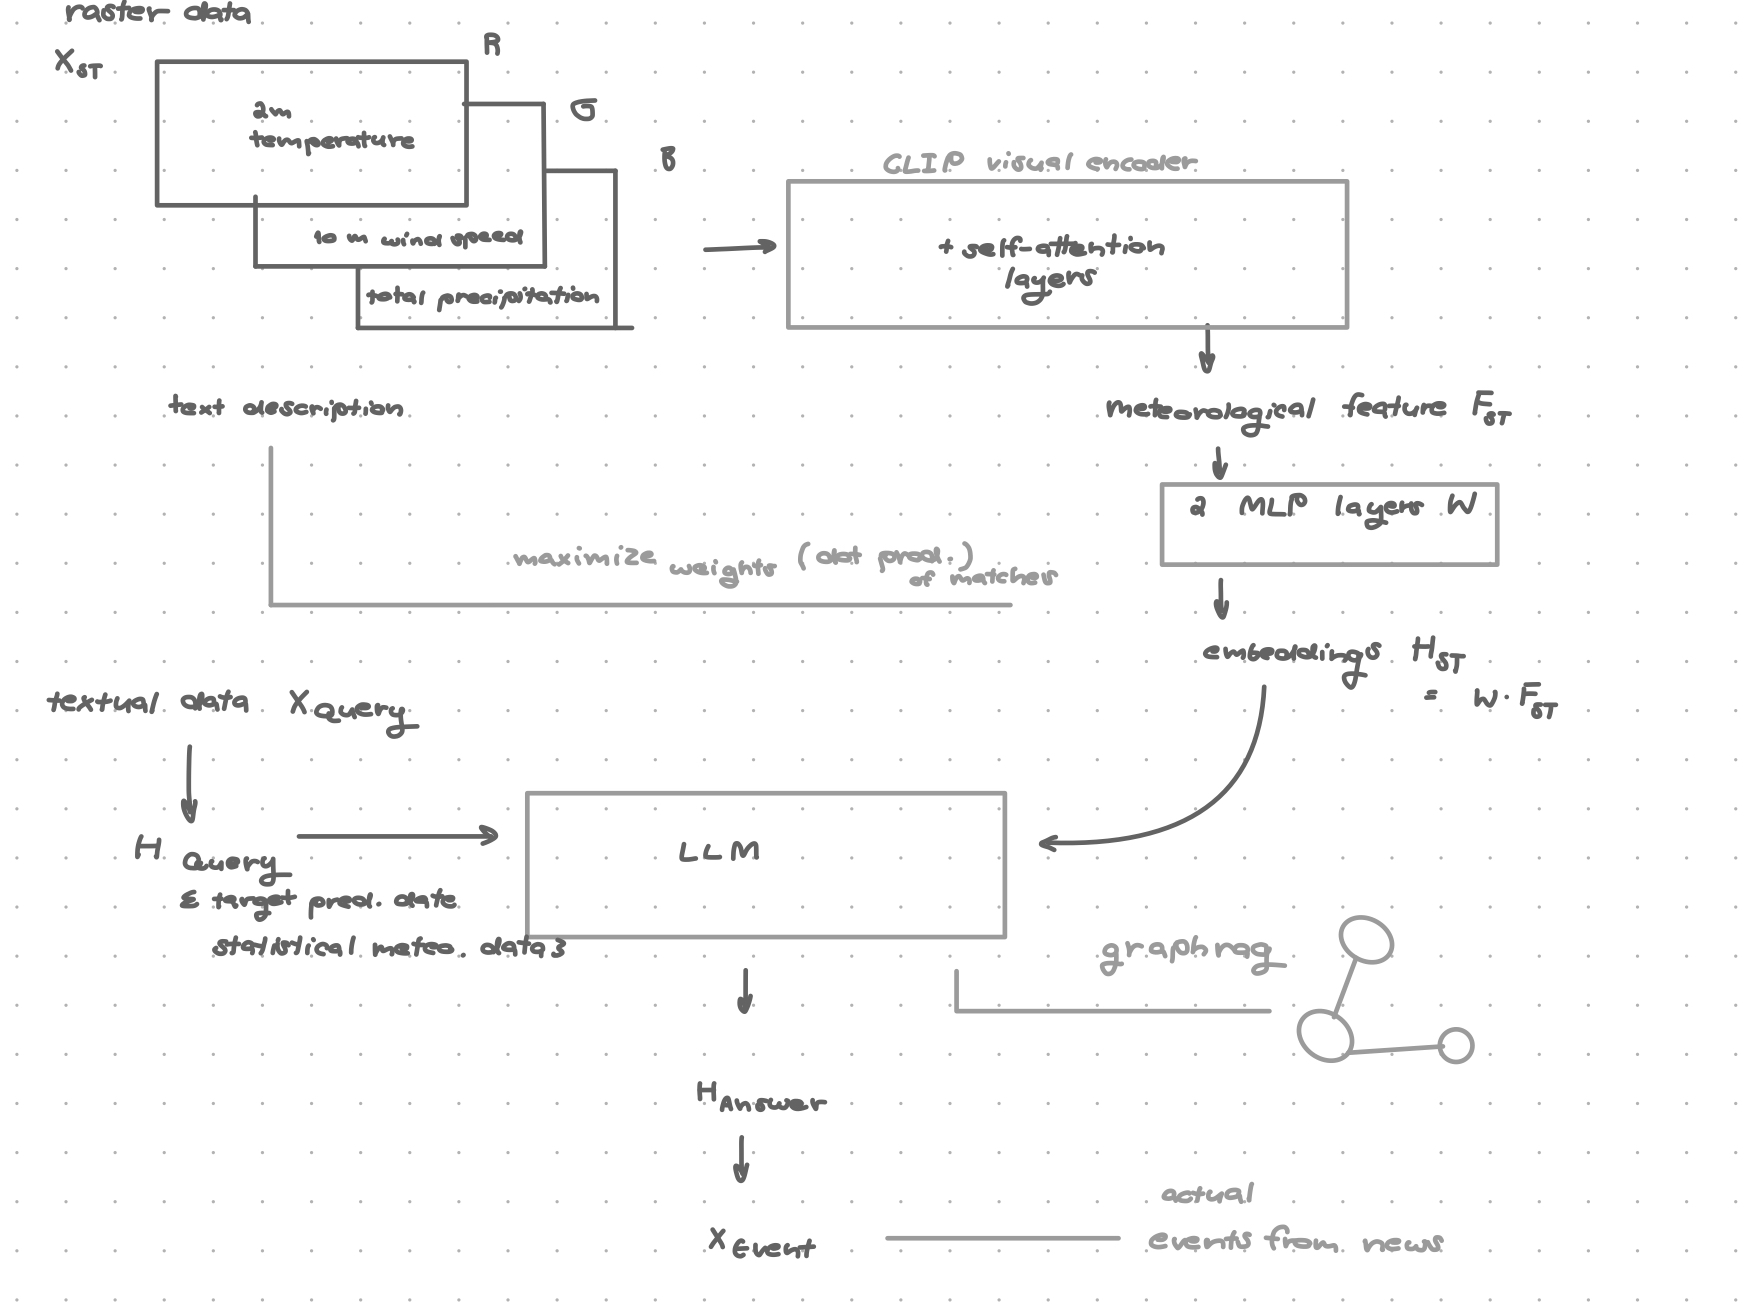 raster data
X ST
R
2m
temperature
G
B
10 m wind speed
total precipitation
CLIP visual encoder
+ self-attention
layers
text description
meteorological feature F ST
2 MLP layers W
maximize weights (dot prod.)
of matches
embeddings H ST
= W · F ST
textual data X Query
H Query
{ target pred. date
statistical meteo. data }
LLM
graphrag
H Answer
X Event
actual
events from news